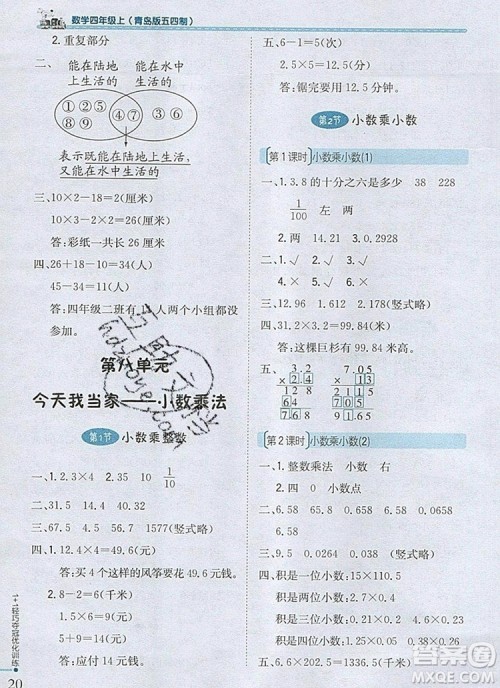 数学四年级上(青岛版五四制)
2.重复部分
二、
能在陆地上生活的
能在水中生活的
①②⑤⑧⑨
④⑦
③⑥
表示既能在陆地上生活,
又能在水中生活的
三、10×2-18=2(厘米)
10×2-2=18(厘米)
答:彩纸一共长26厘米。
四、26+18-10=34(人)
45-34=11(人)
参加。
第八单元
今天我当家——小数乘法
第1节 小数乘整数
一、1. 2.4×3 10 1/10
二、33.4 14.4 10.8
三、67.5 52.5 31.5(竖式略)
四、1. 12.4×4=49.6(元)
答:买4个这样的风筝要花49.6元钱。
2. 1.5×6=9(元)
5+9=14(元)
答:应付14元。
1+1轻巧夺冠优化训练
20
五、6-1=5(次)
2.5×5=12.5(分)
答:锯完要用12.5分钟。
第2节 小数乘小数
第1课时 小数乘小数(1)
一、1. 3.8的十分之六是多少 38 228
1/100 左 两
2. 两 14.21 3 0.2928
二、1. √ 2. × 3. √ 4. ×
三、12.96 1.512 3.8(竖式略)
四、31.2×3.2=99.84(米)
答:这棵巨杉有99.84米。
五、
第2课时 小数乘小数(2)
一、1. 整数乘法 小数 右
2. 四 0 小数点
二、6.58 0.658 6.58 0.0658
三、9.5 0.0144 0.715(竖式略)
四、积是一位小数:15×110.5
积是两位小数:1.5×110.5
积是三位小数:1.5×11.05
积是四位小数:1.5×1.105
五、6.6×202.5=1336.5(千米)